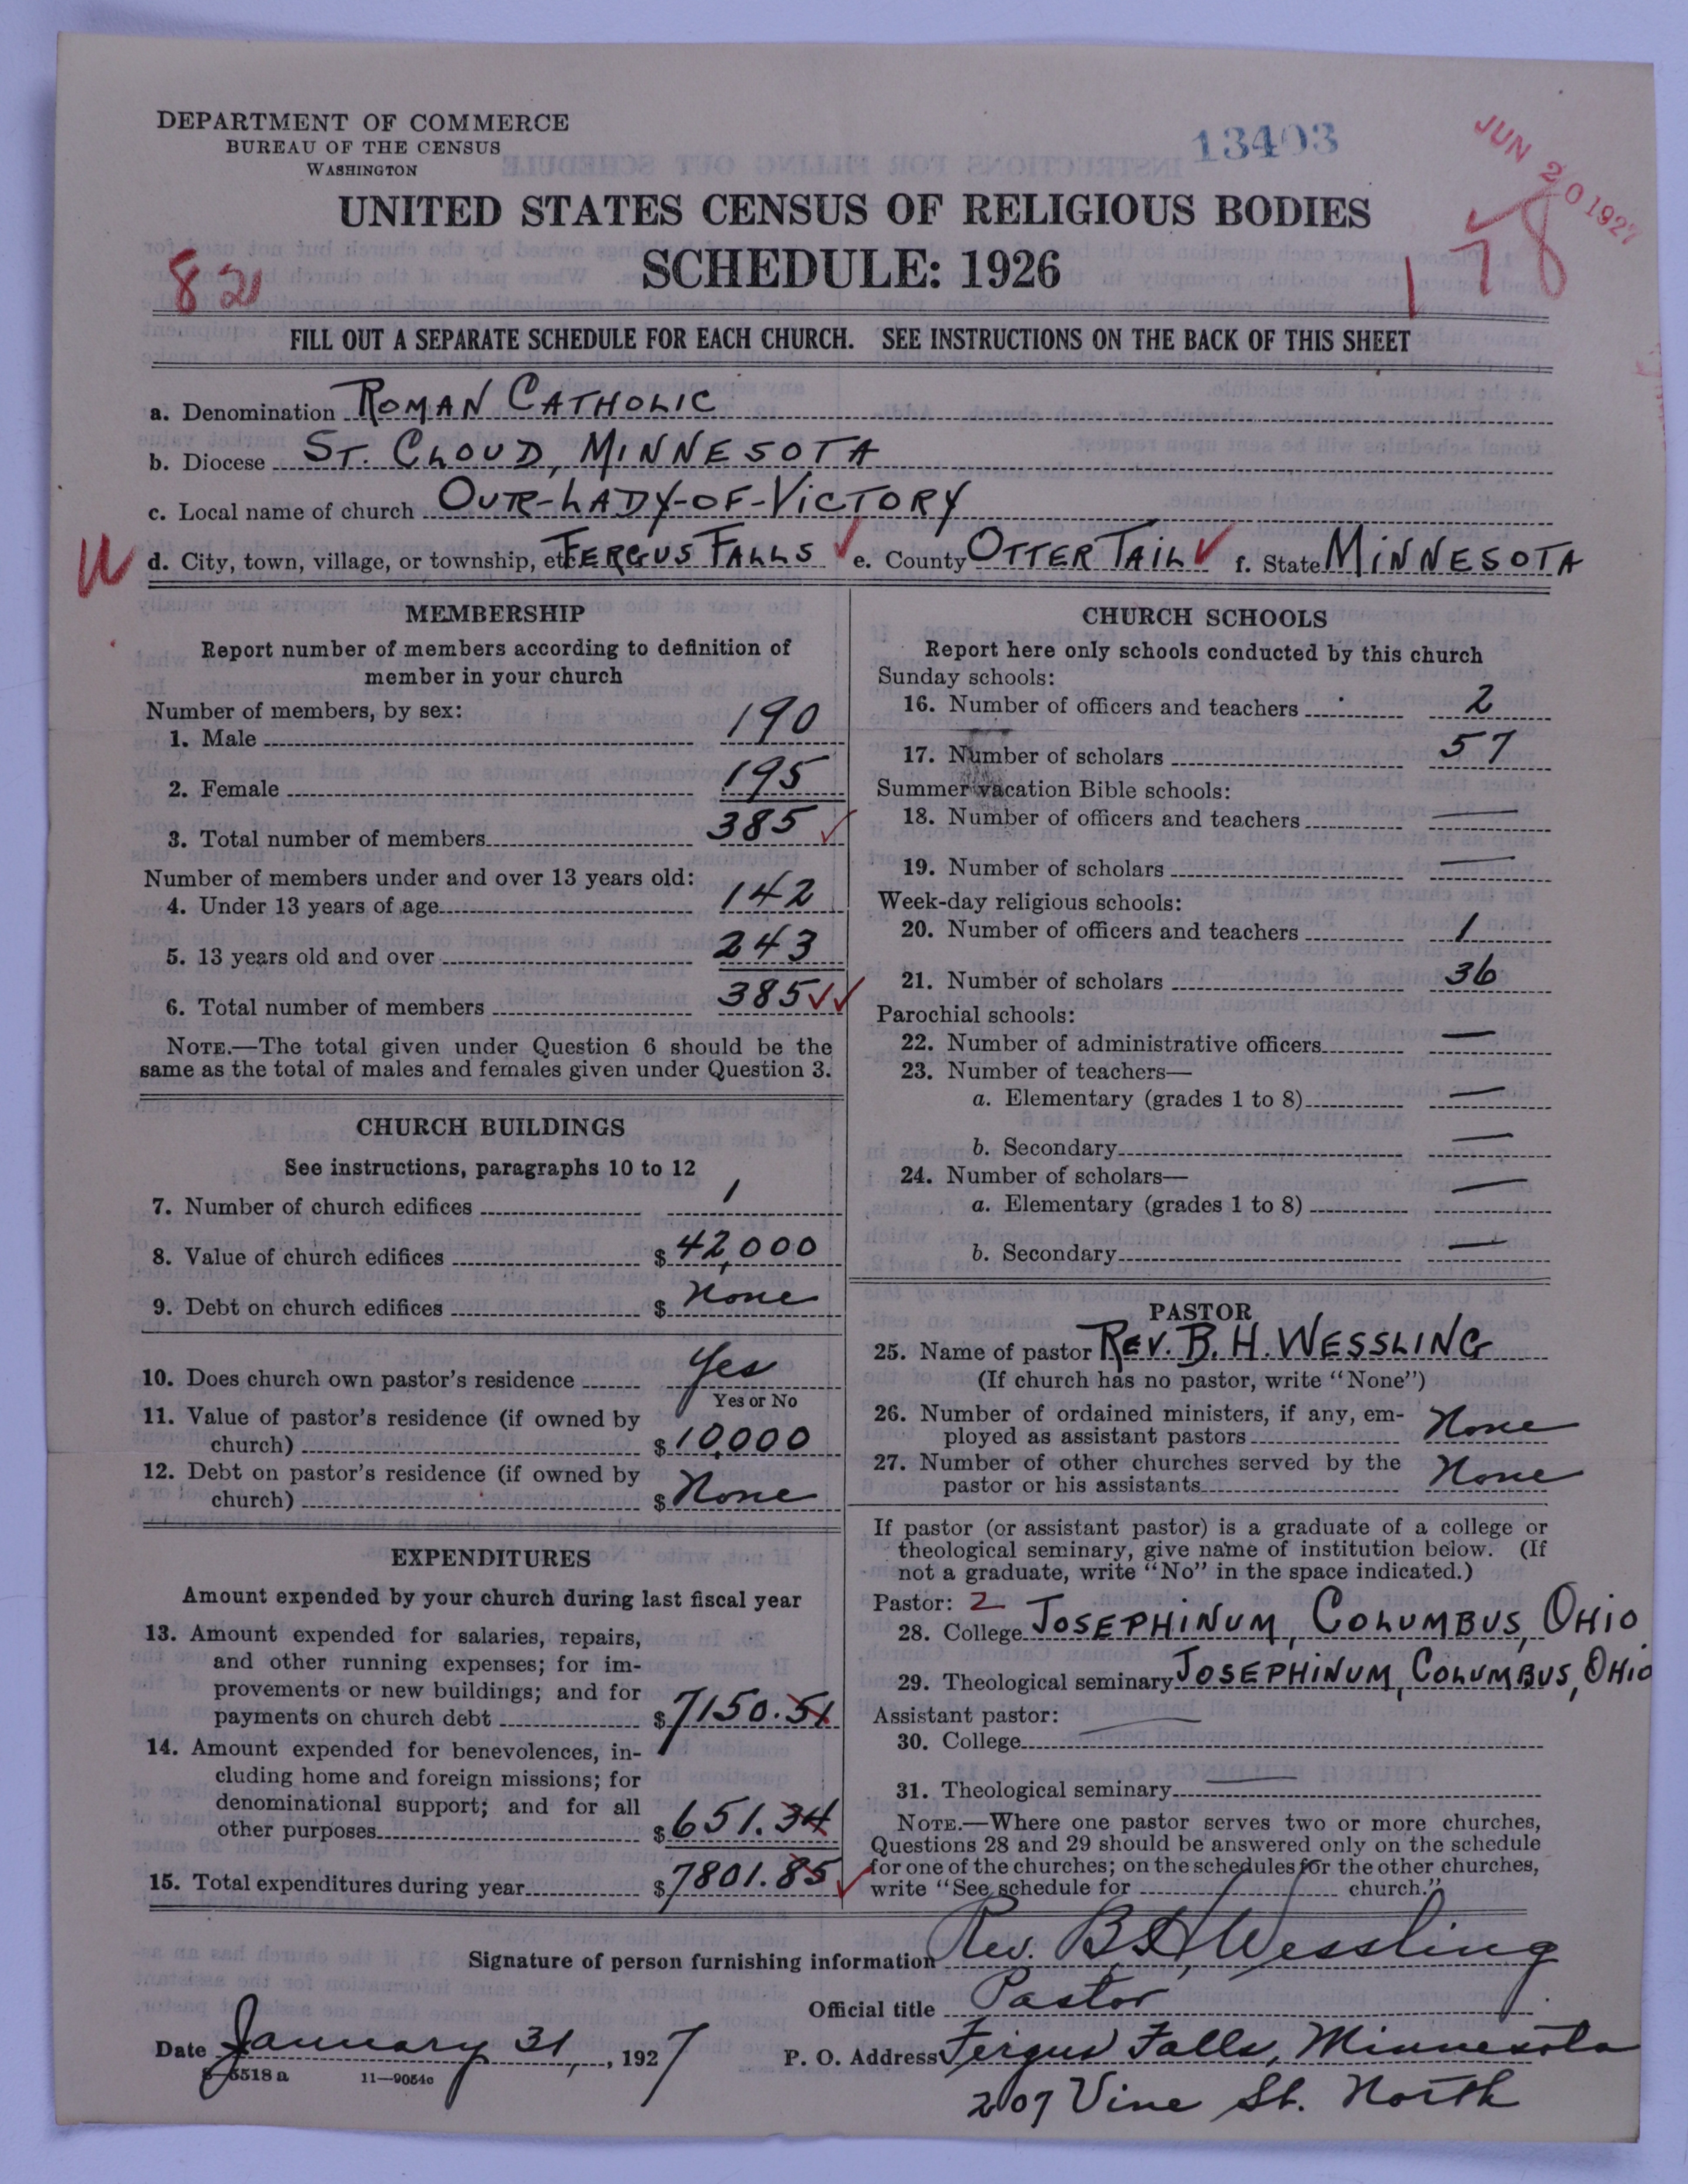 DEPARTMENT OF COMMERCE
BUREAU OF THE CENSUS
WASHINGTON
13403
JUN 20 1927
UNITED STATES CENSUS OF RELIGIOUS BODIES
SCHEDULE: 1926
82
178
FILL OUT A SEPARATE SCHEDULE FOR EACH CHURCH. SEE INSTRUCTIONS ON THE BACK OF THIS SHEET
a. Denomination ROMAN CATHOLIC
b. Diocese ST. CLOUD, MINNESOTA
c. Local name of church OUR-LADY-OF-VICTORY
d. City, town, village, or township, etc. FERGUS FALLS e. County OTTER TAIL f. State MINNESOTA
MEMBERSHIP
Report number of members according to definition of
member in your church
Number of members, by sex:
1. Male 190
2. Female 195
3. Total number of members 385
Number of members under and over 13 years old:
4. Under 13 years of age 142
5. 13 years old and over 243
6. Total number of members 385
NOTE.—The total given under Question 6 should be the
same as the total of males and females given under Question 3.
CHURCH BUILDINGS
See instructions, paragraphs 10 to 12
7. Number of church edifices 1
8. Value of church edifices $ 42,000
9. Debt on church edifices $ None
10. Does church own pastor's residence Yes
Yes or No
11. Value of pastor's residence (if owned by
church) $ 10,000
12. Debt on pastor's residence (if owned by
church) $ None
EXPENDITURES
Amount expended by your church during last fiscal year
13. Amount expended for salaries, repairs,
and other running expenses; for im-
provements or new buildings; and for
payments on church debt $ 7150.51
14. Amount expended for benevolences, in-
cluding home and foreign missions; for
denominational support; and for all
other purposes $ 651.34
15. Total expenditures during year $ 7801.85
CHURCH SCHOOLS
Report here only schools conducted by this church
Sunday schools:
16. Number of officers and teachers 2
17. Number of scholars 57
Summer vacation Bible schools:
18. Number of officers and teachers —
19. Number of scholars —
Week-day religious schools:
20. Number of officers and teachers 1
21. Number of scholars 36
Parochial schools:
22. Number of administrative officers —
23. Number of teachers—
a. Elementary (grades 1 to 8) —
b. Secondary —
24. Number of scholars—
a. Elementary (grades 1 to 8) —
b. Secondary —
PASTOR
25. Name of pastor REV. B. H. WESSLING
(If church has no pastor, write "None")
26. Number of ordained ministers, if any, em-
ployed as assistant pastors None
27. Number of other churches served by the
pastor or his assistants None
If pastor (or assistant pastor) is a graduate of a college or
theological seminary, give name of institution below. (If
not a graduate, write "No" in the space indicated.)
Pastor: 2
28. College JOSEPHINUM, COLUMBUS, OHIO
29. Theological seminary JOSEPHINUM, COLUMBUS, OHIO
Assistant pastor: —
30. College
31. Theological seminary —
NOTE.—Where one pastor serves two or more churches,
Questions 28 and 29 should be answered only on the schedule
for one of the churches; on the schedules for the other churches,
write "See schedule for church."
Signature of person furnishing information Rev. B. H. Wessling
Official title Pastor
Date January 31, 1927 P. O. Address Fergus Falls, Minnesota
207 Vine St. North
8—5518 a 11—9054c